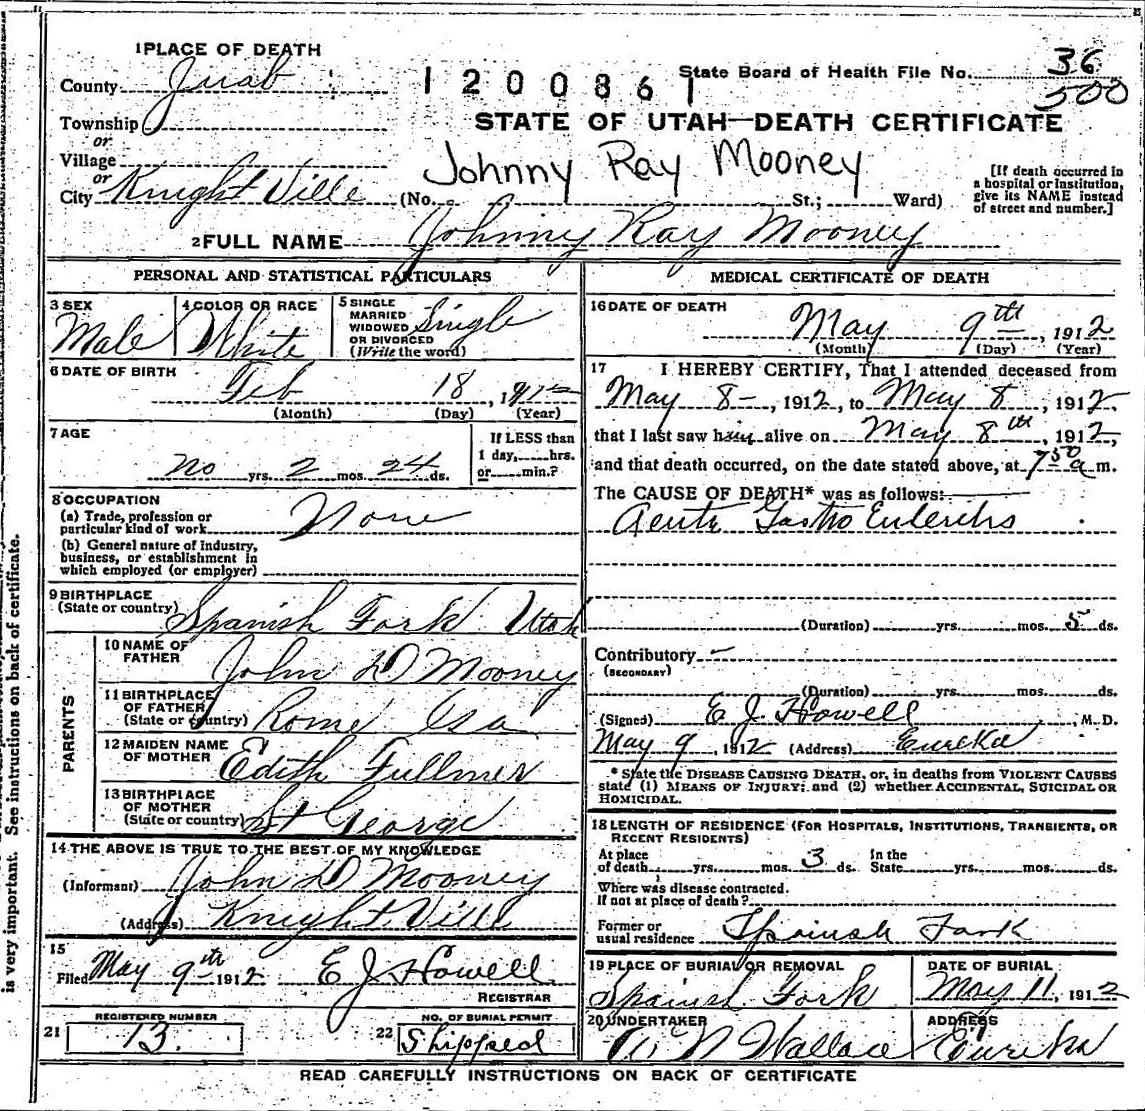 1 PLACE OF DEATH
County Juab
1200861
State Board of Health File No. 36
500
Township
or
Village
or
City Knight Ville
STATE OF UTAH—DEATH CERTIFICATE
Johnny Ray Mooney
(No. St.; Ward)
[If death occurred in a hospital or institution, give its NAME instead of street and number.]
2 FULL NAME Johnny Ray Mooney
PERSONAL AND STATISTICAL PARTICULARS
3 SEX
Male
4 COLOR OR RACE
White
5 SINGLE
MARRIED
WIDOWED
OR DIVORCED
(Write the word)
Single
6 DATE OF BIRTH
Feb 18, 1912
(Month) (Day) (Year)
7 AGE
no yrs. 2 mos. 24 ds.
If LESS than
1 day, hrs.
or min.?
8 OCCUPATION
(a) Trade, profession or
particular kind of work None
(b) General nature of industry,
business, or establishment in
which employed (or employer)
9 BIRTHPLACE
(State or country) Spanish Fork Utah
PARENTS
10 NAME OF
FATHER John D Mooney
11 BIRTHPLACE
OF FATHER
(State or country) Rome
12 MAIDEN NAME
OF MOTHER Edith Fullmer
13 BIRTHPLACE
OF MOTHER
(State or country) St George
14 THE ABOVE IS TRUE TO THE BEST OF MY KNOWLEDGE
(Informant) John D Mooney
(Address) Knight Ville
15
Filed May 9th 1912 E J Howell
REGISTRAR
21 REGISTERED NUMBER
13.
22 NO. OF BURIAL PERMIT
Shipped
MEDICAL CERTIFICATE OF DEATH
16 DATE OF DEATH
May 9th, 1912
(Month) (Day) (Year)
17 I HEREBY CERTIFY, That I attended deceased from
May 8-, 1912, to May 8, 1912.
that I last saw him alive on May 8th, 1912,
and that death occurred, on the date stated above, at 7 50 a m.
The CAUSE OF DEATH* was as follows:
Acute Gastro Enteritis
(Duration) yrs. mos. 5 ds.
Contributory —
(SECONDARY)
(Duration) yrs. mos. ds.
(Signed) E J. Howell, M. D.
May 9, 1912 (Address) Eureka
* State the DISEASE CAUSING DEATH, or, in deaths from VIOLENT CAUSES
state (1) MEANS OF INJURY; and (2) whether ACCIDENTAL, SUICIDAL OR
HOMICIDAL.
18 LENGTH OF RESIDENCE (FOR HOSPITALS, INSTITUTIONS, TRANSIENTS, OR
RECENT RESIDENTS)
At place
of death yrs. mos. 3 ds.
In the
State yrs. mos. ds.
Where was disease contracted.
If not at place of death?
Former or
usual residence Spanish Fork
19 PLACE OF BURIAL OR REMOVAL
Spanish Fork
DATE OF BURIAL
May 11, 1912
20 UNDERTAKER
Wallace
ADDRESS
Eureka
READ CAREFULLY INSTRUCTIONS ON BACK OF CERTIFICATE
is very important. See instructions on back of certificate.